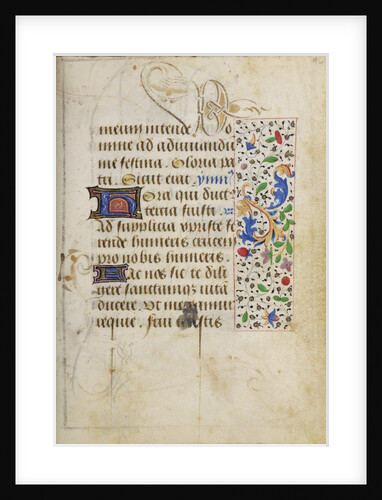 meum intende. Do
mine ad adiuuandu
me festina. Gloria pa
tri. Sicut erat ymn
Hora qui duct
tercia fuisti
Ad supplicia xpiste fe
rende humeris crucem
pro nobis humeris.
Fac nos sic te dili
gere sanctamque uita
ducere. Ut mereamur
requie. frui celestis